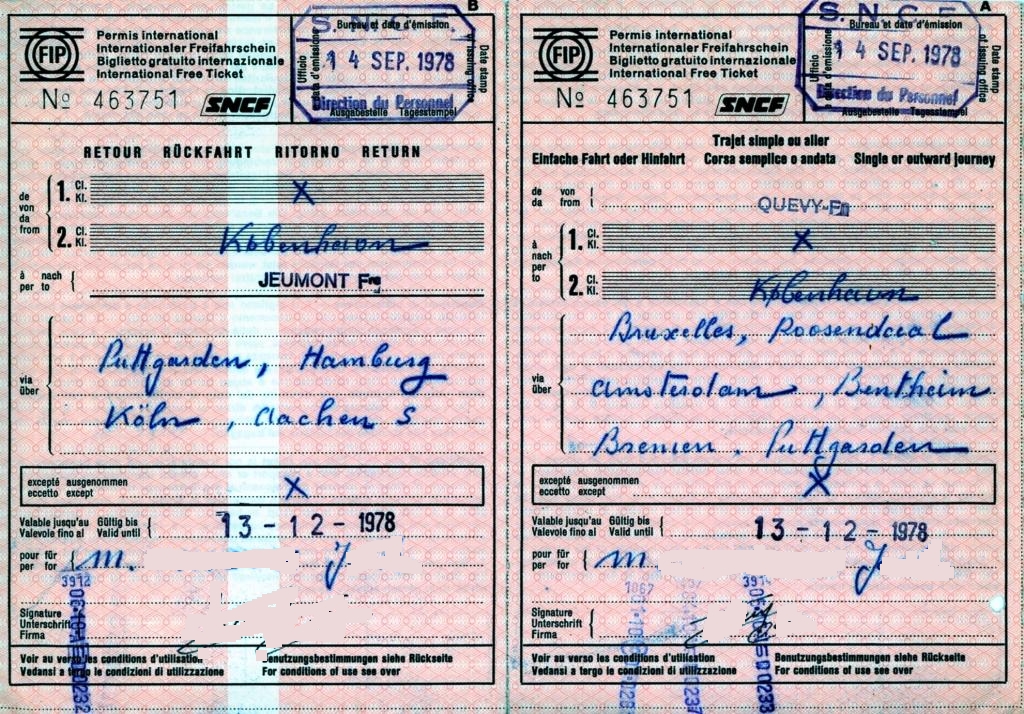 B
FIP
Permis international
Internationaler Freifahrschein
Biglietto gratuito internazionale
International Free Ticket
No 463751
SNCF
S.N.C.F
Bureau et date d'émission
Ufficio e data d'émissione
14 SEP. 1978
Date stamp of issuing office
Direction du Personnel
Ausgabestelle Tagesstempel
RETOUR RÜCKFAHRT RITORNO RETURN
de von da from
1. Cl. Kl. X
2. Cl. Kl. København
à nach per to JEUMONT Fre
via über
Puttgarden, Hamburg
Köln, Aachen S
excepté ausgenommen
eccetto except X
Valable jusqu'au Gültig bis
Valevole fino al Valid until 13-12-1978
pour für
per for m. J
3912
Signature
Unterschrift
Firma
Voir au verso les conditions d'utilisation Benutzungsbestimmungen siehe Rückseite
Vedansi a tergo le condizioni di utilizzazione For conditions of use see over
A
FIP
Permis international
Internationaler Freifahrschein
Biglietto gratuito internazionale
International Free Ticket
No 463751
SNCF
S.N.C.F
Bureau et date d'émission
14 SEP. 1978
Date stamp of issuing office
Direction du Personnel
Ausgabestelle Tagesstempel
Trajet simple ou aller
Einfache Fahrt oder Hinfahrt Corsa semplice o andata Single or outward journey
de von
da from QUEVY-Fre
à nach per to
1. Cl. Kl. X
2. Cl. Kl. København
via über
Bruxelles, Roosendaal
Amsterdam, Bentheim
Bremen. Puttgarden
excepté ausgenommen
eccetto except X
Valable jusqu'au Gültig bis
Valevole fino al Valid until 13-12-1978
pour für
per for m J
1067
Signature
Unterschrift
Firma
Voir au verso les conditions d'utilisation Benutzungsbestimmungen siehe Rückseite
Vedansi a tergo le condizioni di utilizzazione For conditions of use see over